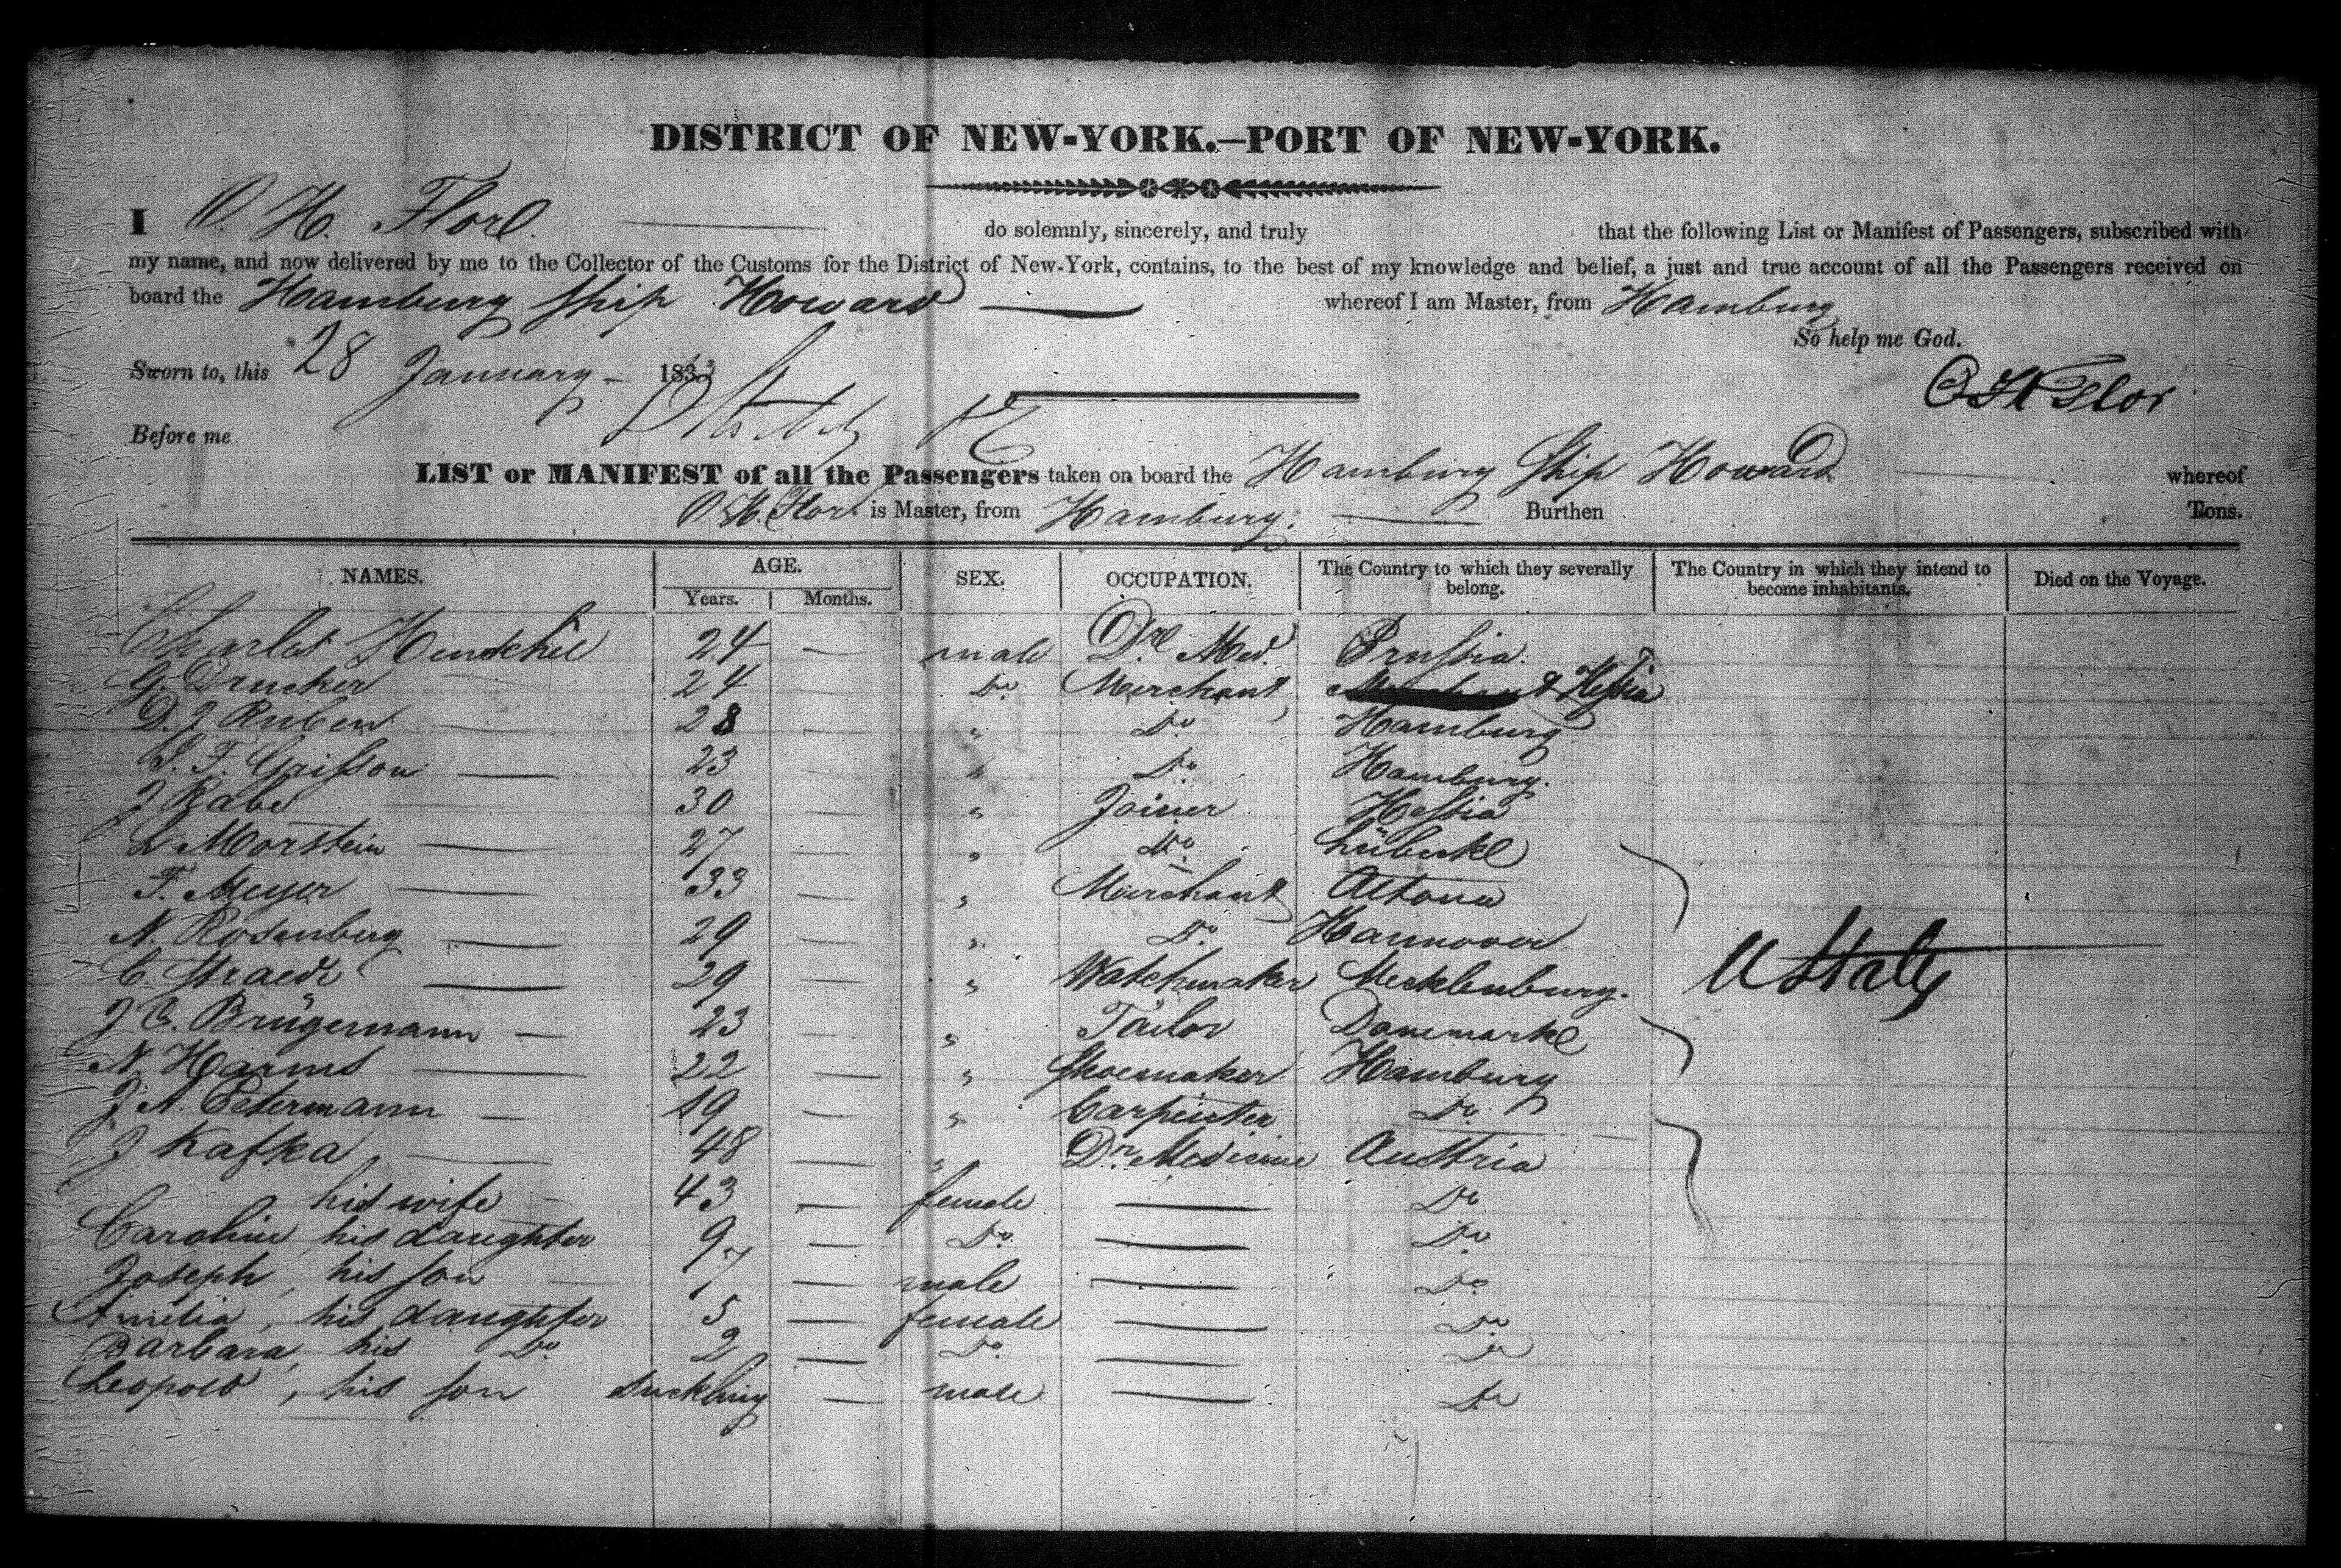 DISTRICT OF NEW-YORK.—PORT OF NEW-YORK.
I O. H. Flor do solemnly, sincerely, and truly that the following List or Manifest of Passengers, subscribed with
my name, and now delivered by me to the Collector of the Customs for the District of New-York, contains, to the best of my knowledge and belief, a just and true account of all the Passengers received on
board the Hamburg Ship Howard whereof I am Master, from Hamburg
So help me God.
Sworn to, this 28 January 183
O H Flor
Before me
LIST or MANIFEST of all the Passengers taken on board the Hamburg Ship Howard whereof
O. H. Flor is Master, from Hamburg. Burthen Tons.
NAMES. AGE. Years. Months. SEX. OCCUPATION. The Country to which they severally belong. The Country in which they intend to become inhabitants. Died on the Voyage.
Charles 24 — male Dr. Med. Prussia.
G. Drucker 24 Do Merchant Hessia
D. J Ruben 28 — " Do Hamburg
S. T. Grisson 23 " Do Hamburg.
J Rabe 30 — " Joiner Hessia
L Morstein 27 — " Do Lübecke
F. Meyer 33 — " Merchant Altona
N. Rosenberg 29 — " Do Hannover
C. 29 — " Watchmaker Mecklenburg. U States
J C. Brügemann 23 — " Tailor Danemarke
N. Harms 22 — " Shoemaker Hamburg
J. A. Petermann 19 — " Carpenter Do
J Kafka, 48 — " Dr. Medicine Austria
his wife 43 — female — Do
Caroline his daughter 9 — Do — Do
Joseph, his son 7 — male — Do
Amelia, his daughter 5 — female — Do
Barbara, his Do 2 — Do — Do
Leopold, his son suckling — male — Do